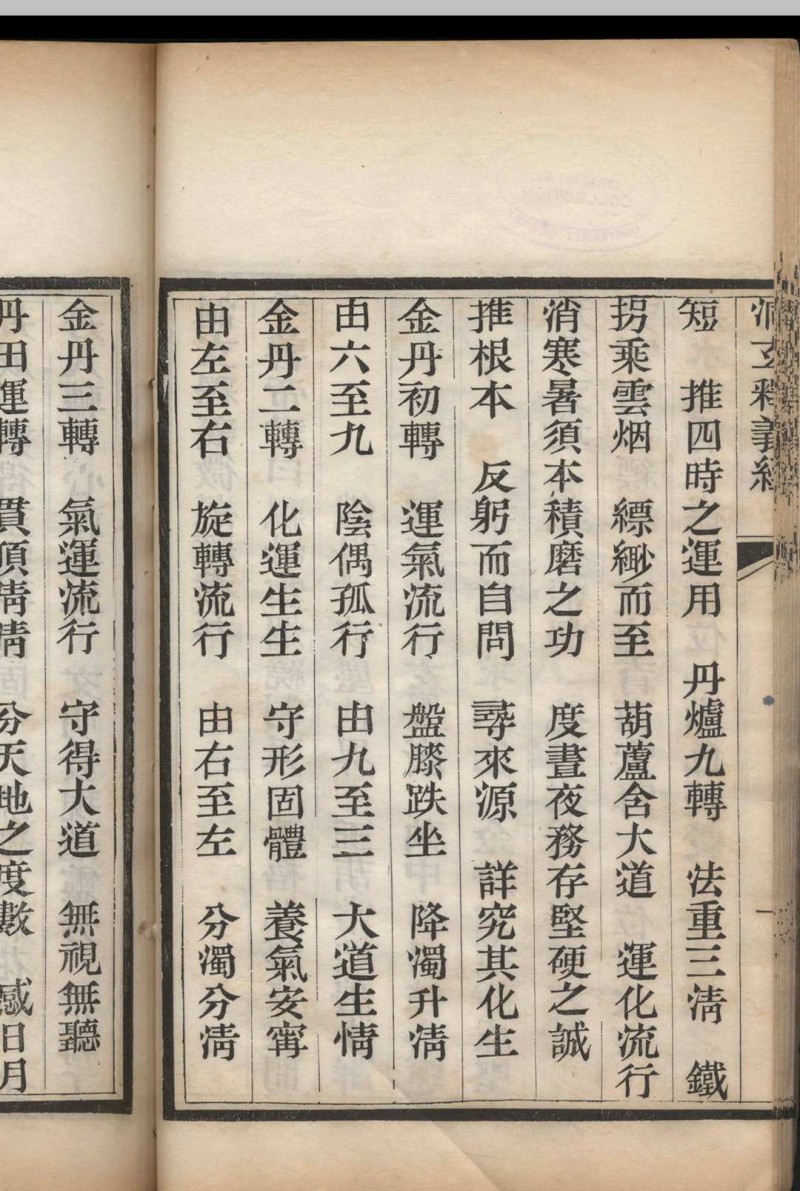 洞玄釋義經
短　推四時之運用　丹爐九轉　法重三清　鐵
拐乘雲烟　縹緲而至　葫蘆含大道　運化流行
消寒暑須本積磨之功　度晝夜務存堅硬之誠
推根本　反躬而自問　尋來源　詳究其化生
金丹初轉　運氣流行　盤膝趺坐　降濁升清
由六至九　陰偶孤行　由九至三　大道生情
金丹二轉　化運生生　守形固體　養氣安寗
由左至右　旋轉流行　由右至左　分濁分清
金丹三轉　氣運流行　守得大道　無視無聽
丹田運轉　貫頂清清　分天地之度數　感日月